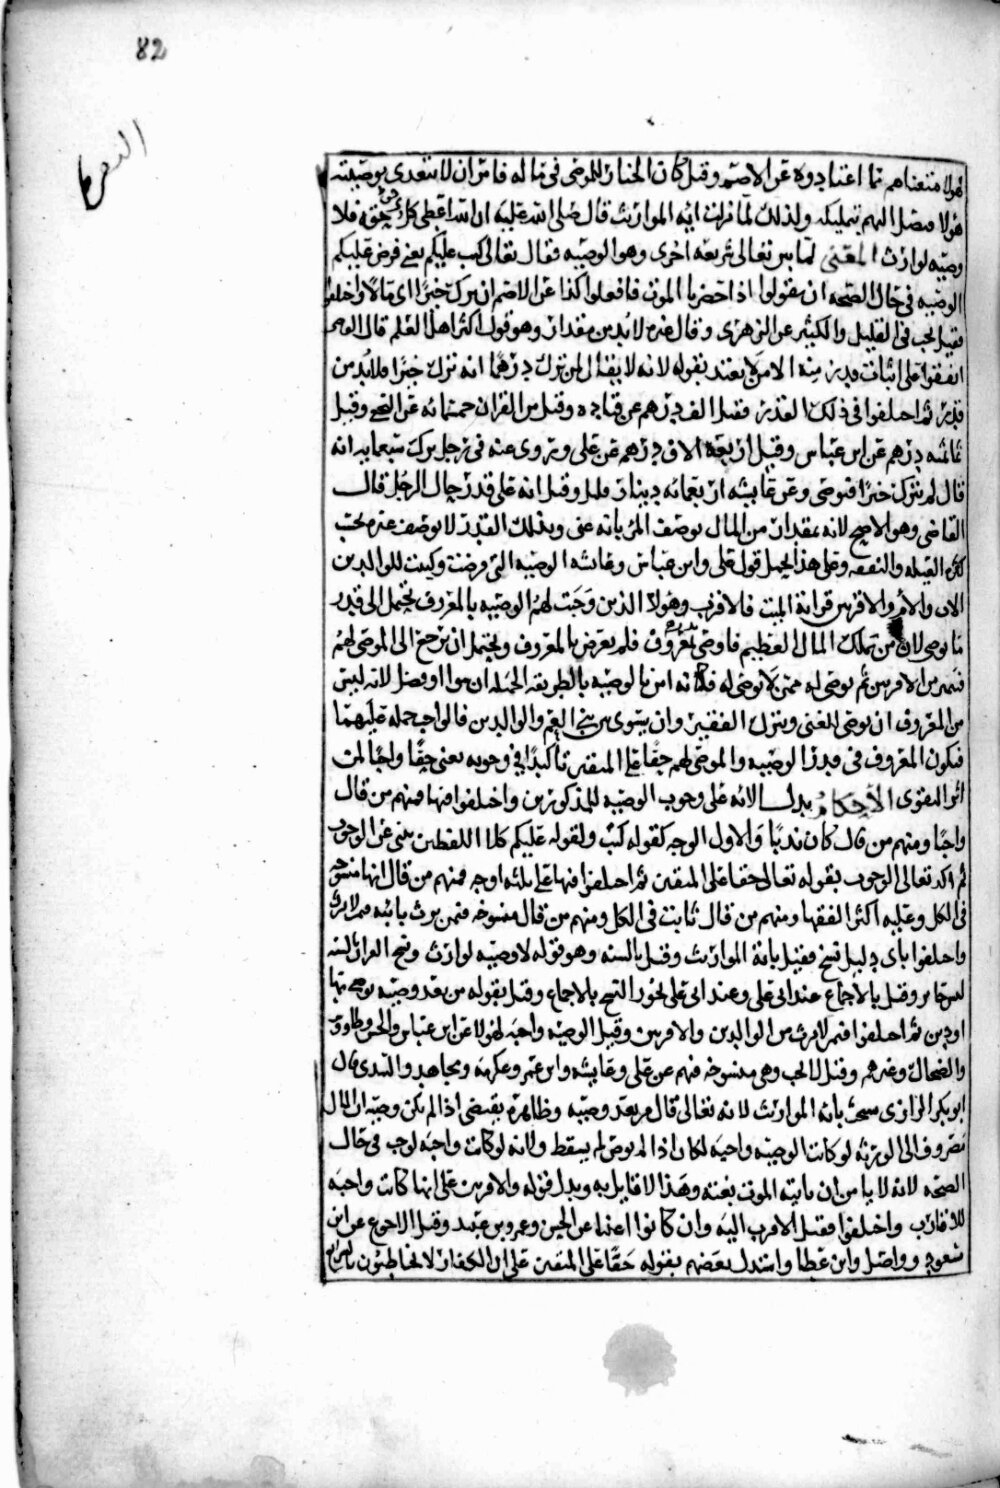 82
هؤلا منعناهم ما اعتادوه عن الاصم وقيل كان الخيار للموصي في ماله فامر ان لا يتعدى بوصيته
هؤلا فيصل اليهم بتمليكه ولذلك لما نزلت ايه المواريث قال صلى الله عليه ان الله اعطى كل ذي حق حقه فلا
وصيه لوارث المعنى لما بين تعالى شريعه اخرى وهو الوصيه فقال تعالى كتب عليكم يعني فرض عليكم
الوصيه في حال الصحه ان يقولوا اذا حضرنا الموت فافعلوا كذا عن الاصم ان ترك خيرا اي مالا واختلفوا
فقيل يجب في القليل والكثير عن الزهري وقال غيره لا بد من مقدار وهو قول اكثر اهل العلم قال
اتفقوا على اثبات قدر منه الا من لا يعتد بقوله لانه لا يقال لمن ترك درهما انه ترك خيرا فلا بد من
قدر ثم اختلفوا في ذلك القدر فقيل الف درهم عن قتاده وقيل من الفران خمسمائه عن النخعي وقيل
ثمانمائه درهم عن ابن عباس وقيل اربعه الاف درهم عن علي وتروى عنه في رجل ترك سبعمايه انه
قال لم يترك خيرا فيوصي وعن عايشه اربعمائه دينار وقيل انه على قدر حال الرجل قال
القاضي وهو الاصح لانه بمقدار من المال يوصف المرء بانه غني وبذلك القدر لا يوصف غيره بحسب
كثره العيله والنفقه وعلى هذا يحمل قول علي وابن عباس وعائشه الوصيه التي فرضت وكتبت للوالدين
الاب والام والاقربين قرابة الميت فالاقرب وهؤلاء الذين وجبت لهم الوصيه بالمعروف يحتمل الى قدر
ما يوصي لان من تملك المال العظيم فاوصى بقدر فلم يعرض بالمعروف ويحتمل ان يرجع الى الموصى لهم
فتميز من الاقربين ثم يوصى له ممن لا يوصى له فكانه امر بالوصيه بالطريقه الجميله لانه ليس
من المعروف ان يوصي للغني ويترك الفقير وان يسوي بين بني العم والوالدين فالواجب حمله عليهما
فيكون المعروف في قدر الوصيه والموصى لهم حقا على المتقين تأكيدا في وجوبه يعني حقا واجبا لمن
اثر التقوى الاحكام يدل الايه على وجوب الوصيه للمذكورين واختلفوا فيها فمنهم من قال
واجبا ومنهم من قال كان ندبا والاول الوجه لقوله كتب ولقوله عليكم كلا اللفظين ينبئ عن الوجوب
ثم اكد تعالى الوجوب بقوله تعالى حقا على المتقين ثم اختلفوا فيها على ثلثه اوجه فمنهم من قال انها منسوخه
في الكل وعليه اكثر الفقها ومنهم من قال ثابت في الكل ومنهم من قال منسوخه فيمن يرث ثابته فيمن لا يرث
واختلفوا باي دليل نسخ فقيل باية المواريث وقيل بالسنه وهو قوله لا وصيه لوارث ونسخ القران بالسنه
ليس بجائز وقيل بالاجماع عند ابي علي وعند ابي علي يجوز النسخ بالاجماع وقيل بقوله من بعد وصيه يوصى بها
او دين ثم اختلفوا فيمن لا يرث من الوالدين والاقربين وقيل الوصيه واجبه لهؤلا عن ابن عباس والحسن وطاووس
والضحاك وغيرهم وقيل لا يجب وهي منسوخه فيهم عن علي وعايشه وابن عمر وعكرمه ومجاهد والسدي قال
ابو بكر الرازي نسخت باية المواريث لانه تعالى قال من بعد وصيه وظاهره يقتضي اذا لم تكن وصيه ان المال
مصروف الى الورثه لو كانت الوصيه واجبه لكان اذا لم يوص لم يسقط ولانه لو كانت واجبه لوجب في حال
الصحه لانه لا يامن ان ياتيه الموت بغته وهذا لا قايل به ويدل قوله والاقربين على انها كانت واجبه
للاقارب واختلفوا فقيل الاقرب اليه وان كانوا اغنيا عن الحسن وعمرو بن عبيد وقيل الاحوج عن ابن
مسعود وواصل وابن عطا واستدل بعضهم بقوله حقا على المتقين على ان الكفار لا يخاطبون بالشرايع